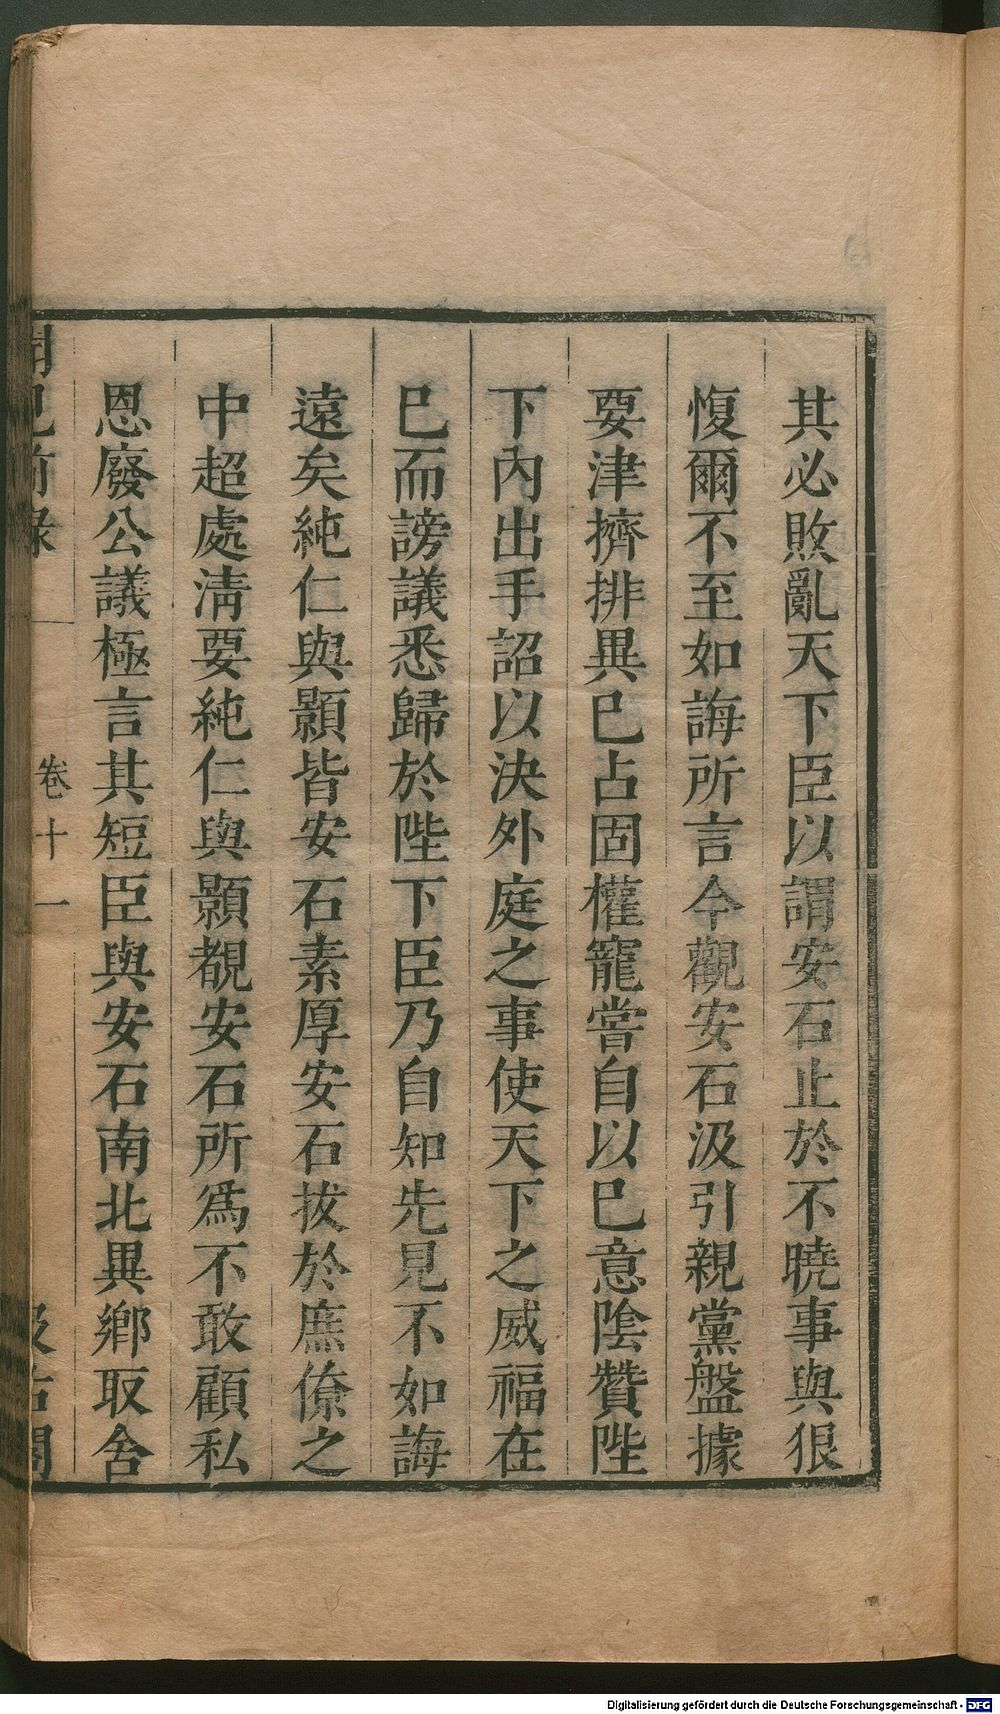 其必敗亂天下臣以謂安石止於不曉事與狠
愎爾不至如誨所言今觀安石汲引親黨盤據
要津擠排異已占固權寵嘗自以已意陰贊陛
下內出手詔以決外庭之事使天下之威福在
已而謗議悉歸於陛下臣乃自知先見不如誨
遠矣純仁與顥皆安石素厚安石拔於庶僚之
中超處淸要純仁與顥覩安石所爲不敢顧私
恩廢公議極言其短臣與安石南北異鄉取舍
聞見前錄
卷十一
汲古閣
Digitalisierung gefördert durch die Deutsche Forschungsgemeinschaft - DFG